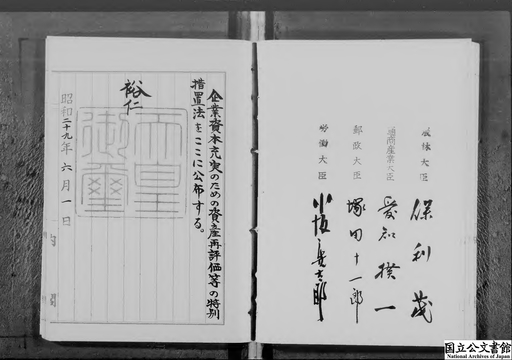 企業資本充実のための資産再評価等の特別
措置法をここに公布する。
裕仁
天皇
御璽
昭和二十九年六月一日
農林大臣 保利茂
通商産業大臣 愛知揆一
郵政大臣 塚田十一郎
労働大臣 小坂善太郎
国立公文書館
National Archives of Japan